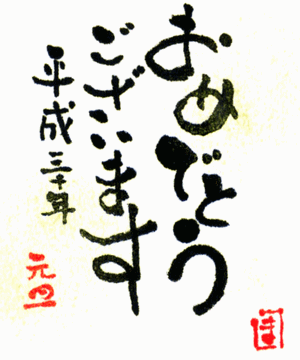 おめでとう
ございます
平成三十年
元旦